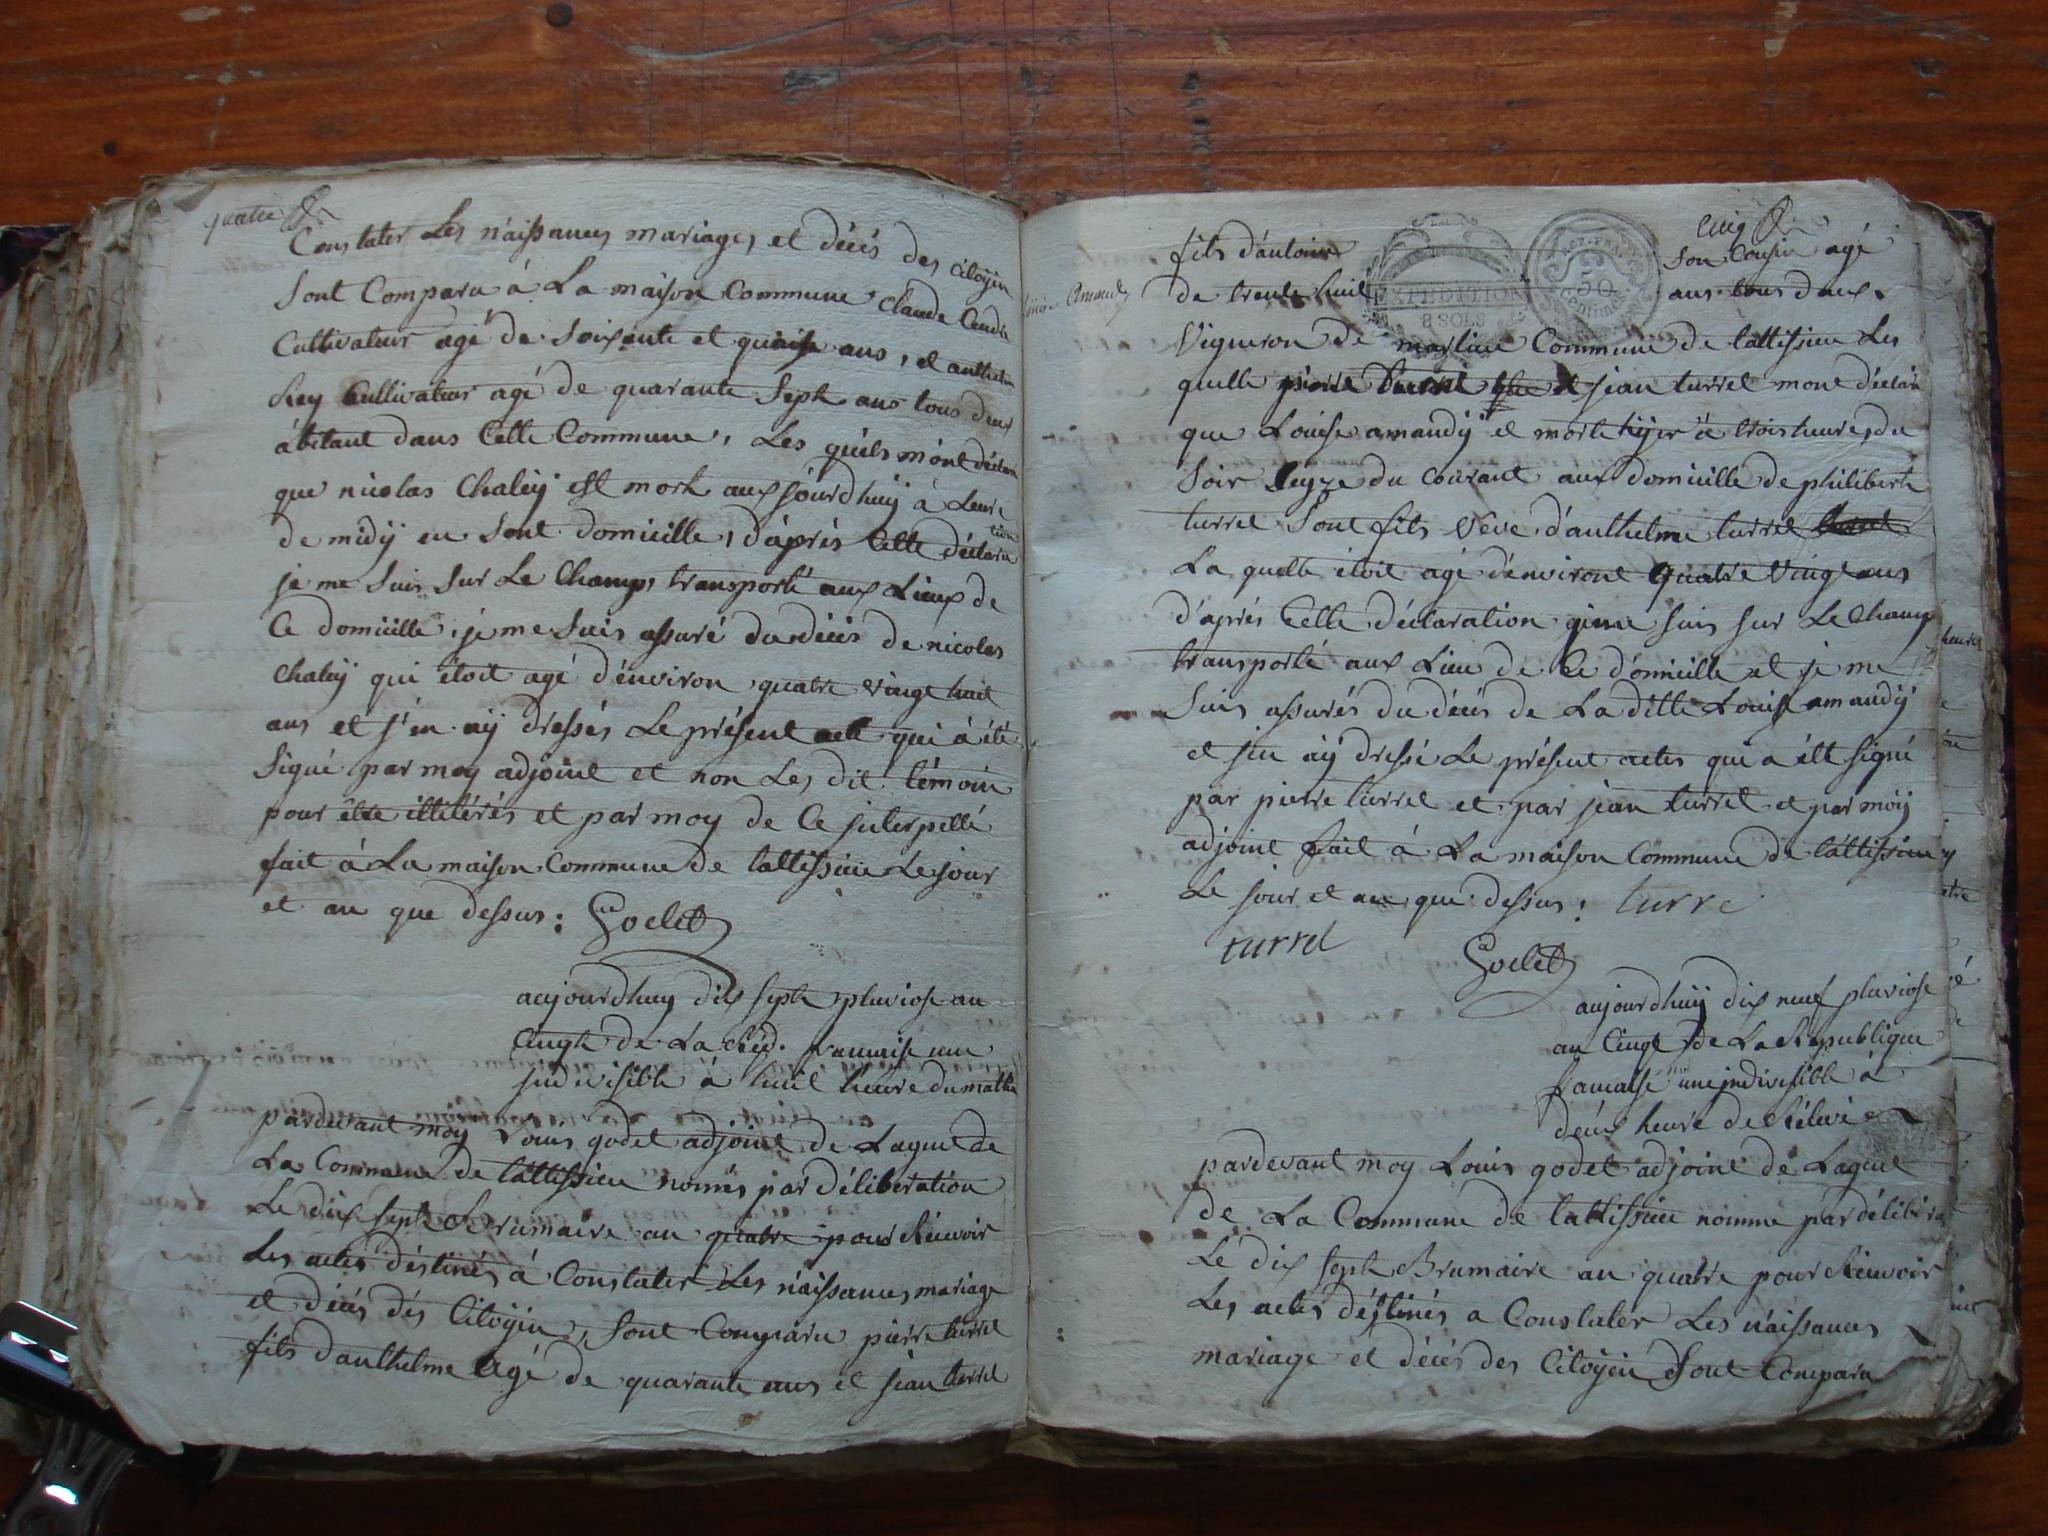 quatre
Constater Les náissances mariages et décés des citoyin
Sont Comparu à La maison Commune Claude
Cultivateur agé de Soixente et quinse ans, et anthelme
Rey Cultivateur agé de quarante Sept ans tous deux
ábitant dans Cette Commune, Les quels m'ont déclaré
que nicolas Chaleÿ est mort aux jourdhuÿ à Leure
de midÿ en Sont domicille, d'aprés Cette déclara
tion
je me Suis Sur Le Champ, transporté aux Lieux de
Ce domicille, je me Suis assuré du décés de nicolas
Chaleÿ qui étoit agé d'énviron quatre vingt huit
ans et j'en aÿ dressés Le présent acte qui à été
Signé par moy adjoint et non Les dit témoin
pour être illitérés et par moy de Ce interpellé
fait à La maison Commune de lattissieu Le jour
et an que dessus: Godet
aujourdhuy dix sept pluviose an
Cinqt de La Rép. francaise une
indivisible à huit heure du matin
pardevant moy Louis godet adjoint de Lagent de
La Commune de lattissieu només par déliberation
Le dix sept Brumaire an quatre pour Réuvoir
Les actes déstinés à Constater Les náissances mariage
et décés dés Citoyin, Sont Comparu pierre turrel
fils danthelme agé de quarante ans et jean turrel
cinq
fils d'antoine Son Cousin agé
de trente huit ans tous deux
EXPEDITION
8 SOLS
50
Centimes
Amandy
Vigneron de Commune de lattissieu Les
quelle pierre et jean turrel mont déclaré
que Louise amandÿ et morte hÿer à trois heures du
Soir Seyze du Courant aux domicille de philibert
turrel Sont fils vêve d'anthelme turrel
La quelle étoit agé d'énviront quatre vingt ans
d'aprés Cette déclaration suis sur Le Champ
transporté aux Lieu de Ce dómicille et je me
Suis assurés du décés de La ditte Louise amandÿ
et jen aÿ dressé Le présent actes qui a étt signé
par pierre turrel et par jean turrel et par moÿ
adjoint fait à La maison Commune de lattissieu
Le jour et an que dessus: turre
turrel
Godet
aujourdhuÿ dix neuf pluviose
an Cinqt de La Republique
francaise une indivisible à
deux heure de Réluvé
pardevant moy Louis godet adjoint de Lagent
de La Commune de lattissieu nomme par délibéra
Lé dix sept Brumaire an quatre pour Réuvoir
Les actes déstinés a Constater Les náissances
mariage et décés des Citoyin Sont Comparu
heures